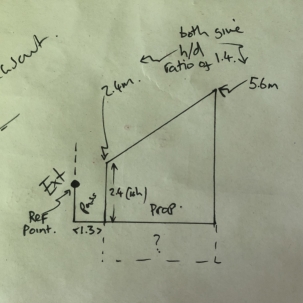 both give
h/d
ratio of 1.4.
2.4m.
5.6m
Ext
Ref
Point.
2.4 (ish)
Prop.
<1.3>
?